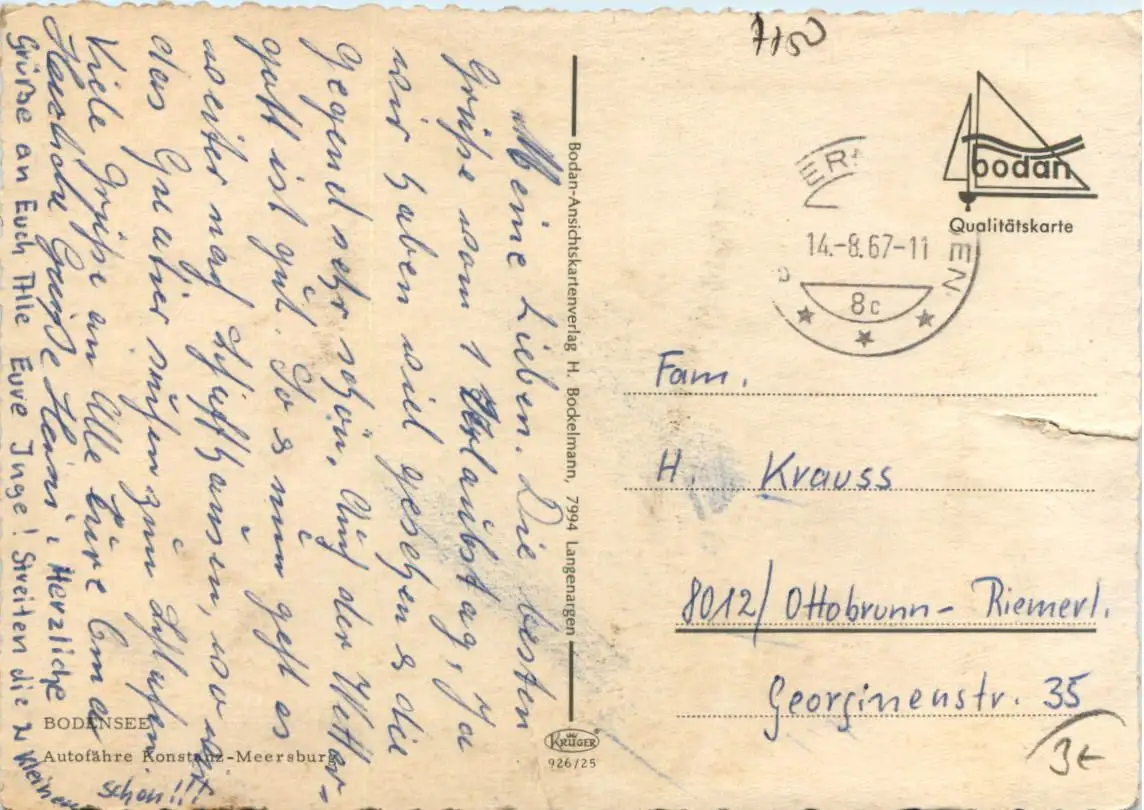 Meine Lieben. Die besten
Grüße vom 1 Urlaubstag, Ja
wir haben viel gesehen & die
Gegend sehr schön. Auch der Wetter-
gott ist gut. So & nun geht es
weiter nach Schaffhausen, wo dort
das Quatier suchen zum Schlafen
Viele Grüße an Alle Eure Oma
Herzliche Grüße Heini, Herzliche
Grüße an Euch Alle Eure Inge! Streiten die 2 Kleinen
schön!!!
BODENSEE
Autofähre Konstanz-Meersburg
Bodan-Ansichtskartenverlag H. Bockelmann, 7994 Langenargen
KRÜGER
926/25
7150
bodan
Qualitätskarte
14.-8.67-11
8c
Fam.
H. Krauss
8012/ Ottobrunn- Riemerl.
Georginenstr. 35
3€